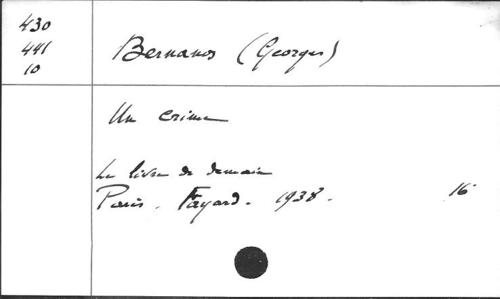 430
441
10
Bernanos (Georges)
Un crime
Le livre de demain
Paris. Fayard. 1938. 16